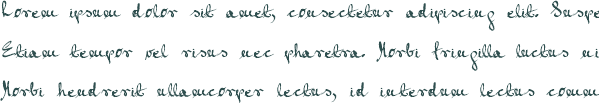 Lorem ipsum dolor sit amet, consectetur adipiscing elit. Suspe
Etiam tempor vel risus nec pharetra. Morbi fringilla luctus ni
Morbi hendrerit ullamcorper lectus, id interdum lectus comm